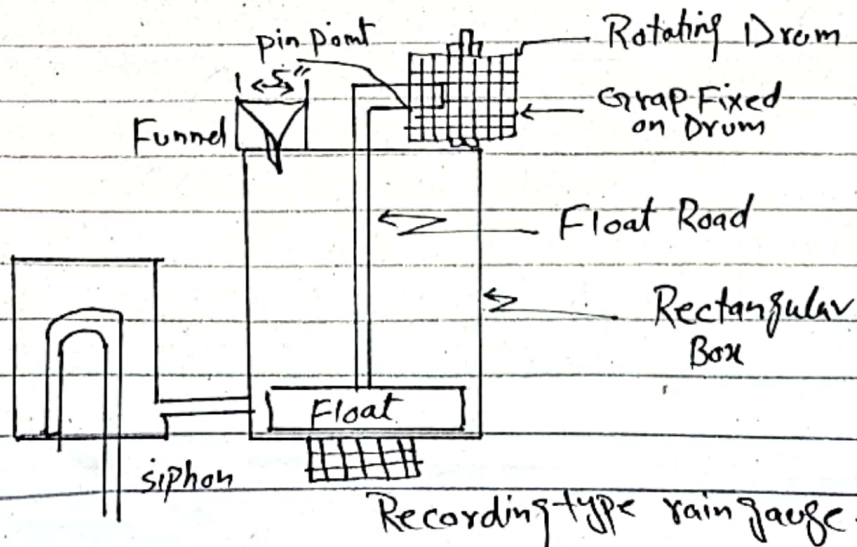 pin point
Rotating Drum
5"
Grap Fixed
on Drum
Funnel
Float Road
Rectangular
Box
Float
siphon
Recording type rain gauge.